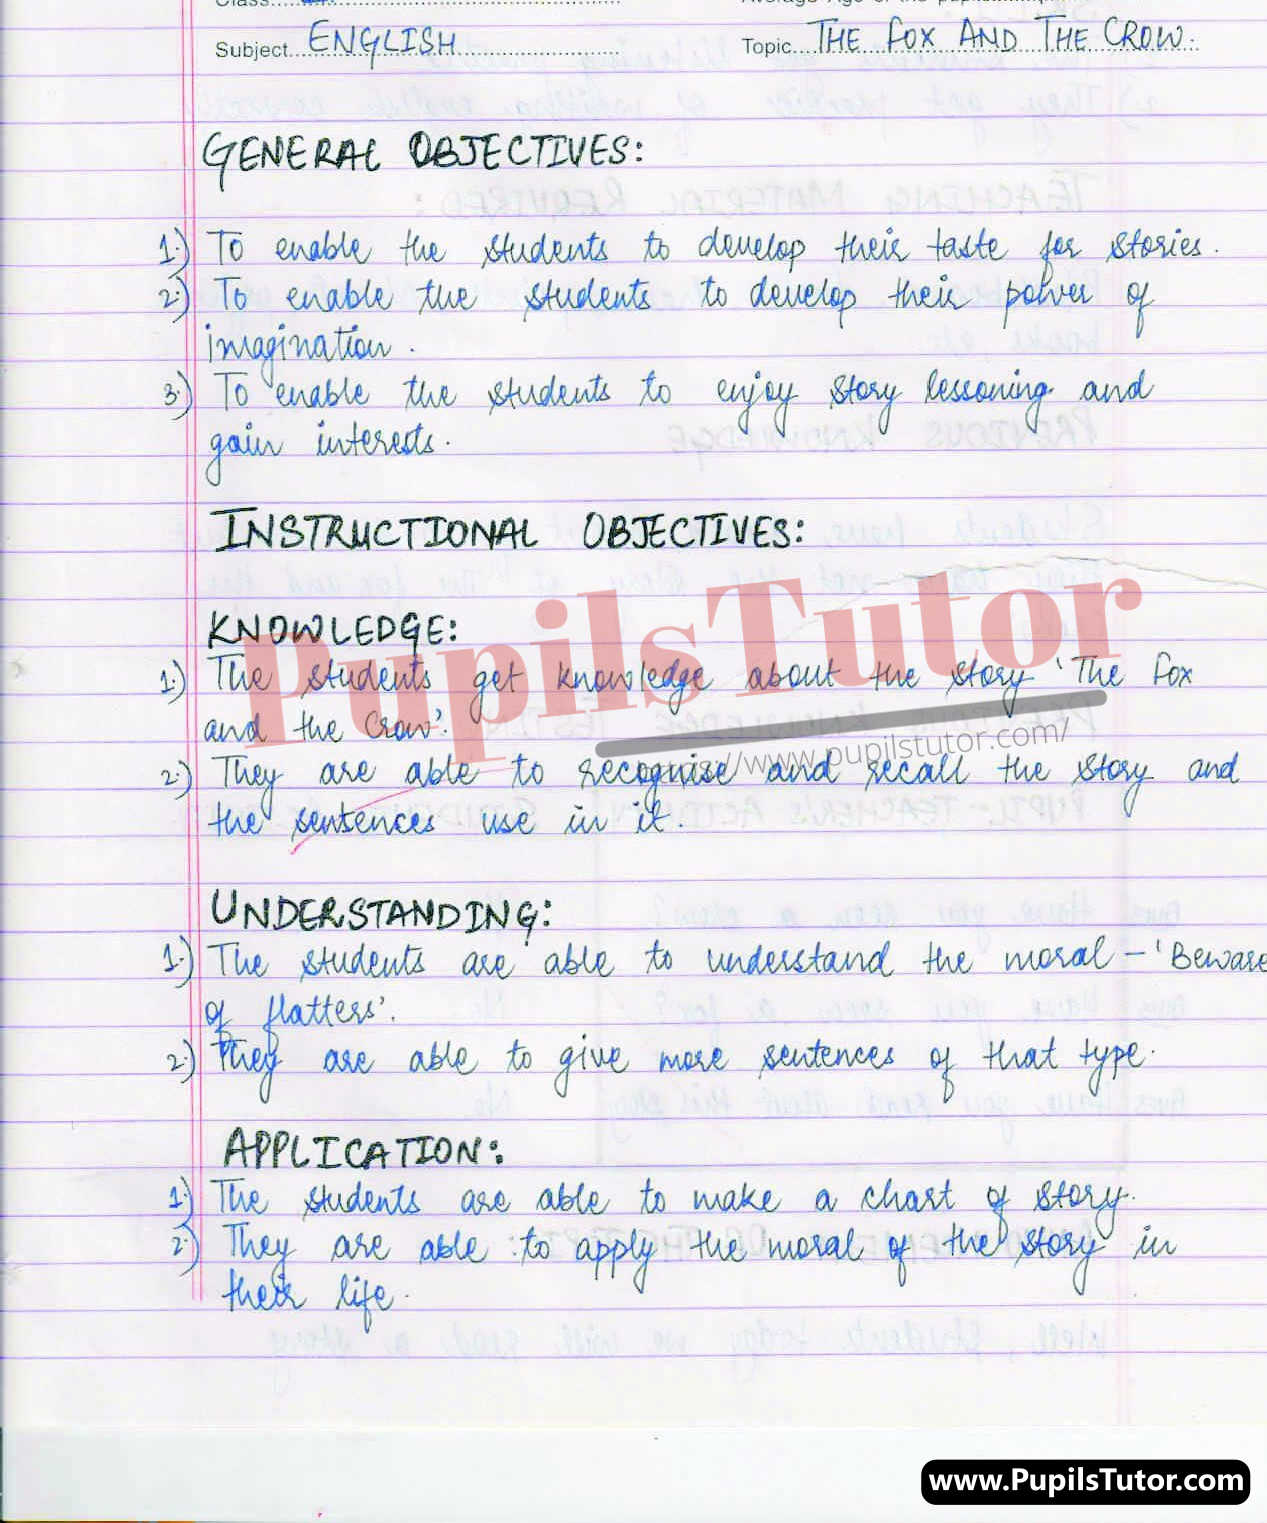 Subject... ENGLISH
Topic... THE FOX AND THE CROW.
GENERAL OBJECTIVES:
1.) To enable the students to develop their taste for stories.
2.) To enable the students to develop their power of
imagination.
3.) To enable the students to enjoy story lessoning and
gain interests.
INSTRUCTIONAL OBJECTIVES:
KNOWLEDGE:
1.) The students get knowledge about the story 'The Fox
and the Crow'.
2.) They are able to recognise and recall the story and
the sentences use in it.
PupilsTutor
https://www.pupilstutor.com/
UNDERSTANDING:
1.) The students are able to understand the moral – 'Beware
of flatters'.
2.) They are able to give more sentences of that type.
APPLICATION:
1.) The students are able to make a chart of story.
2.) They are able to apply the moral of the story in
their life.
www.PupilsTutor.com